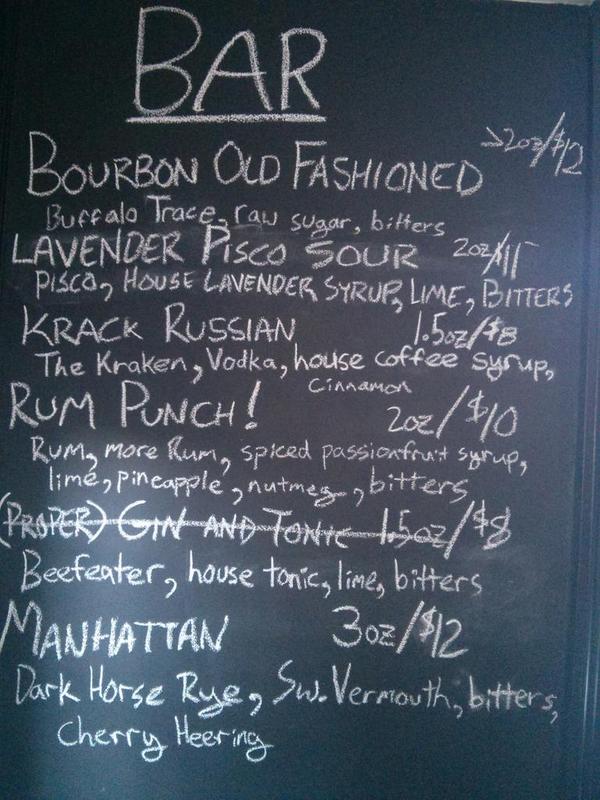 BAR
BOURBON OLD FASHIONED →2oz/$12
Buffalo Trace, raw sugar, bitters
LAVENDER PISCO SOUR 2oz/$11
PISCO, HOUSE LAVENDER SYRUP, LIME, BITTERS
KRACK RUSSIAN 1.5oz/$8
The Kraken, Vodka, house coffee syrup,
cinnamon
RUM PUNCH! 2oz/$10
Rum, more Rum, spiced passionfruit syrup,
lime, pineapple, nutmeg, bitters
(PROPER) GIN AND TONIC 1.5oz/$8
Beefeater, house tonic, lime, bitters
MANHATTAN 3oz/$12
Dark Horse Rye, Sw. Vermouth, bitters,
Cherry Heering